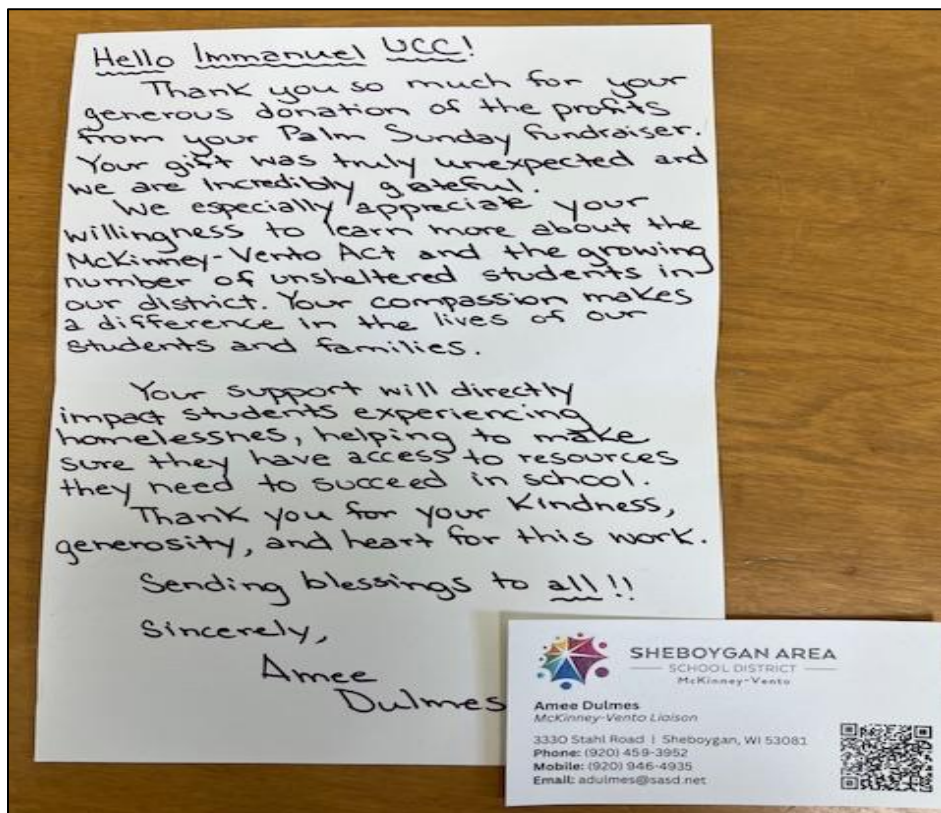 Hello Immanuel UCC!
Thank you so much for your
generous donation of the profits
from your Palm Sunday fundraiser.
Your gift was truly unexpected and
we are incredibly grateful.
We especially appreciate your
willingness to learn more about the
McKinney-Vento Act and the growing
number of unsheltered students in
our district. Your compassion makes
a difference in the lives of our
students and families.
Your support will directly
impact students experiencing
homelessnes, helping to make
sure they have access to resources
they need to succeed in school.
Thank you for your kindness,
generosity, and heart for this work.
Sending blessings to all!!
Sincerely,
Amee
Dulmes
SHEBOYGAN AREA
SCHOOL DISTRICT
McKinney-Vento
Amee Dulmes
McKinney-Vento Liaison
3330 Stahl Road | Sheboygan, WI 53081
Phone: (920) 459-3952
Mobile: (920) 946-4935
Email: adulmes@sasd.net